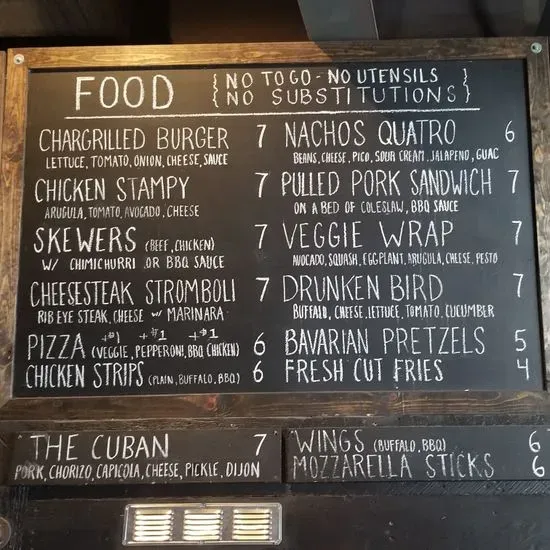 FOOD
{NO TO GO - NO UTENSILS}
{NO SUBSTITUTIONS}
CHARGRILLED BURGER 7
LETTUCE, TOMATO, ONION, CHEESE, SAUCE
CHICKEN STAMPY 7
ARUGULA, TOMATO, AVOCADO, CHEESE
SKEWERS (BEEF, CHICKEN) 7
W/ CHIMICHURRI OR BBQ SAUCE
CHEESESTEAK STROMBOLI 7
RIB EYE STEAK, CHEESE w/ MARINARA
+$1 +$1 +$1
PIZZA (VEGGIE, PEPPERONI, BBQ CHICKEN) 6
CHICKEN STRIPS (PLAIN, BUFFALO, BBQ) 6
NACHOS QUATRO 6
BEANS, CHEESE, PICO, SOUR CREAM, JALAPENO, GUAC
PULLED PORK SANDWICH 7
ON A BED OF COLESLAW, BBQ SAUCE
VEGGIE WRAP 7
AVOCADO, SQUASH, EGGPLANT, ARUGULA, CHEESE, PESTO
DRUNKEN BIRD 7
BUFFALO, CHEESE, LETTUCE, TOMATO, CUCUMBER
BAVARIAN PRETZELS 5
FRESH CUT FRIES 4
THE CUBAN 7
PORK, CHORIZO, CAPICOLA, CHEESE, PICKLE, DIJON
WINGS (BUFFALO, BBQ) 6
MOZZARELLA STICKS 6